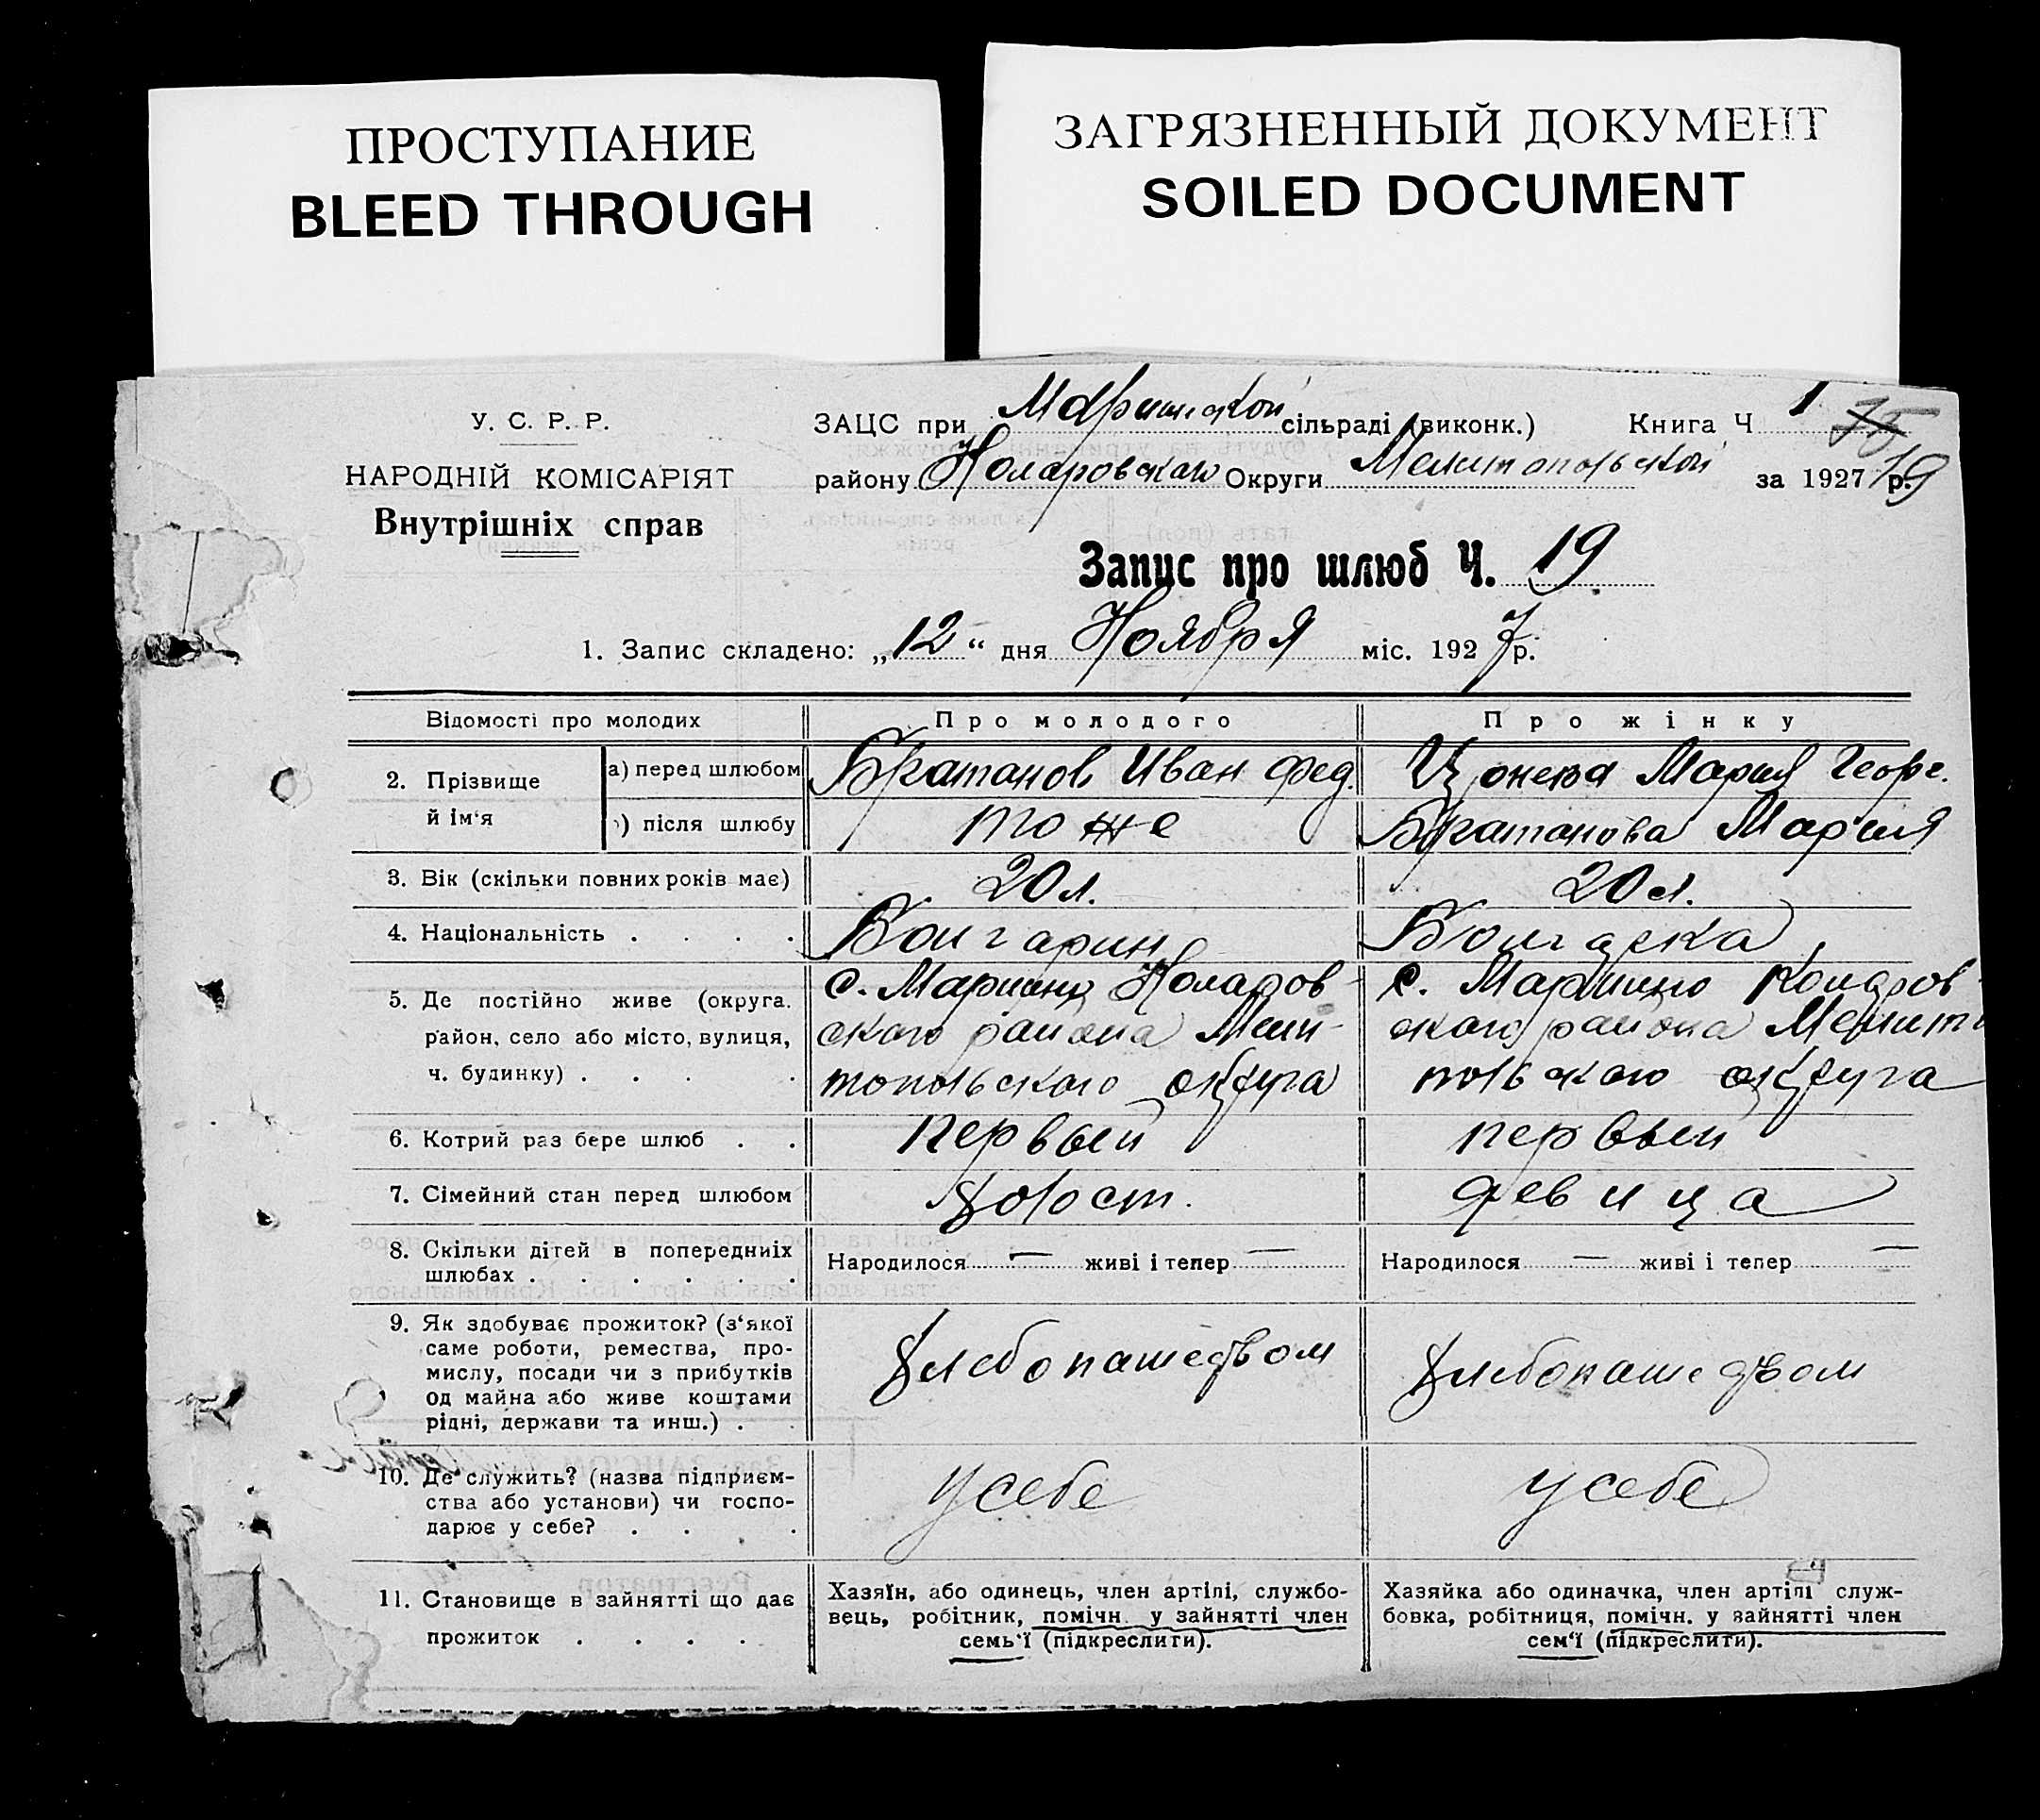 ПРОСТУПАНИЕ
BLEED THROUGH
ЗАГРЯЗНЕННЫЙ ДОКУМЕНТ
SOILED DOCUMENT
У. С. Р. Р.
НАРОДНІЙ КОМІСАРІЯТ
Внутрішніх справ
ЗАЦС при Маринской сільраді (виконк.) Книга Ч 1 75
району Коларовского Округи Мелитопольской за 1927 р. 19
Запис про шлюб Ч. 19
1. Запис складено: „12“ дня Ноября міс. 1927 р.
Відомості про молодих Про молодого Про жінку
2. Прізвище й ім‘я
а) перед шлюбом Братанов Иван Фед. Цонева Мария Георг.
) після шлюбу то же Братанова Мария
3. Вік (скільки повних років має) 20 л. 20 л.
4. Національність . . . . Болгарин Болгарка
5. Де постійно живе (округа. район, село або місто, вулиця, ч. будинку) . . . .
с. Марино Коларов-
ского района Мели-
топольского округа
с. Марино Коларов-
ского района Мелито
польского округа
6. Котрий раз бере шлюб . . первый первый
7. Сімейний стан перед шлюбом холост. девица
8. Скільки дітей в попередніх шлюбах . . . . . .
Народилося — живі і тепер — Народилося — живі і тепер —
9. Як здобуває прожиток? (з‘якої
саме роботи, ремества, про-
мислу, посади чи з прибутків
од майна або живе коштами
рідні, держави та инш.) . .
хлебопашеством хлебопашеством
10. Де служить? (назва підприєм-
ства або установи) чи госпо-
дарює у себе? . . .
у себе у себе
11. Становище в зайнятті що дає
прожиток . . . .
Хазяїн, або одинець, член артілі, службо-
вець, робітник, помічн. у зайнятті член
семь‘ї (підкреслити).
Хазяйка або одиначка, член артілі служ-
бовка, робітниця, помічн. у зайнятті член
сем‘ї (підкреслити).